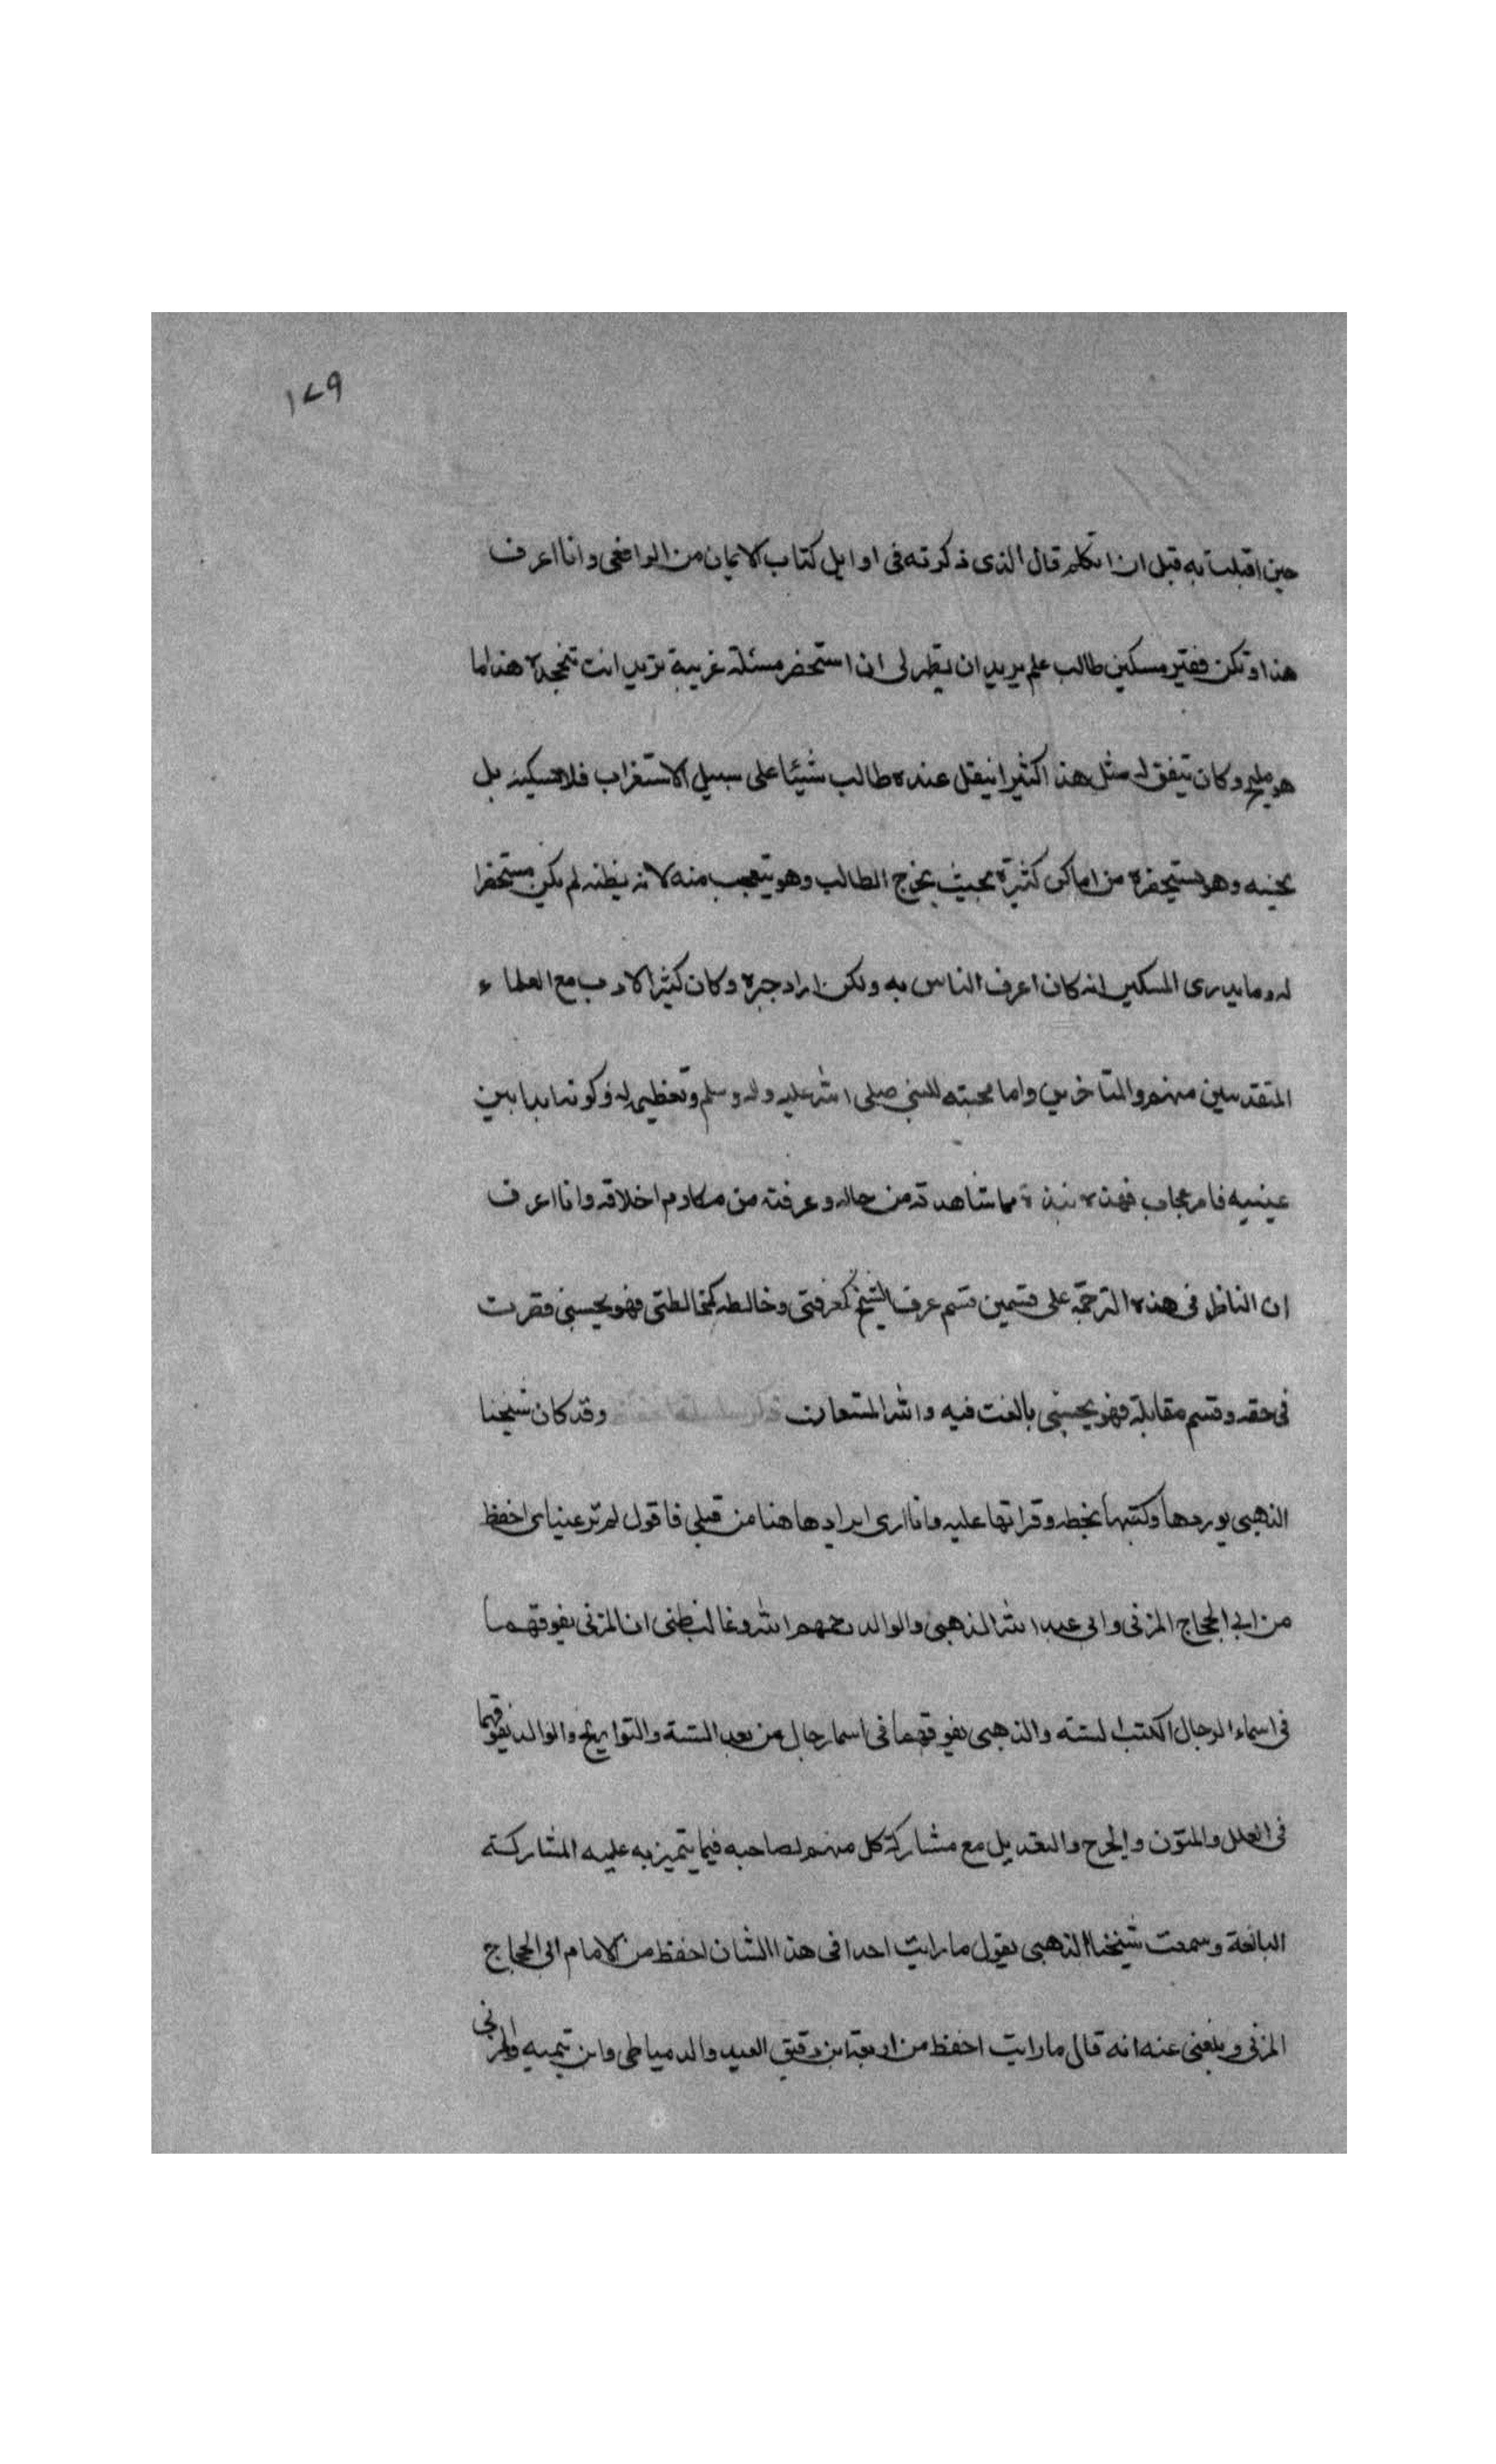 ١٧٩
حين اقبلت به قبل ان اتكلم قال الذى ذكرته فى اوايل كتاب الايمان من الرافعى وانا اعرف
هذا وتكن فقير مسكين طالب علم يريد ان يظهر لى ان استحضر مسئلة غريبة تريد انت تخجله هذا ما
هو مليح وكان يتفق له مثل هذا كثيرا ينقل عنده طالب شيئا على سبيل الاستغراب فلا يبكيه بل
يحنيه وهو مستحضره من اماكن كثيرة بحيث يخرج الطالب وهو يتعجب منه لانه يظنه لم يكن مستحضرا
له وما يدرى المسكين انه كان اعرف الناس به ولكن اراد جبره وكان كثير الادب مع العلماء
المتقدمين منهم والمتاخرين واما محبته للنبى صلى الله عليه وله وسلم وتعظيمه له وكونه ابدا بين
عينيه فامر عجاب فهذه نبذة مما شاهدته من حاله وعرفته من مكارم اخلاقه وانا اعرف
ان الناظر فى هذه الترجمة على قسمين قسم عرف الشيخ كمعرفتى وخالطه كمخالطتى فهو يحسبنى قصرت
فى حقه وقسم مقابله فهو يحسبنى بالغت فيه والله المستعان وقد كان شيخنا
الذهبى يوردها وكتبها بخطه وقراتها عليه وانا ارى ايرادها هنا من قبلى فاقول لم تر عيناى احفظ
من ابى الحجاج المزنى وابى عبد الله الذهبى والوالد رحمهم الله وغالب ظنى ان المزنى يفوقهما
فى اسماء الرجال الكتب الستة والذهبى يفوقهما فى اسما رجال من بعد الستة والتواريخ والوالد يفوقهما
فى العلل والمتون والجرح والتعديل مع مشاركة كل منهم لصاحبه فيما يتميز به عليه المشاركة
البالغة وسمعت شيخنا الذهبى يقول ما رايت احدا فى هذا الشان احفظ من الامام ابى الحجاج
المزنى وبلغنى عنه انه قال ما رايت احفظ من اربعة ابن دقيق العيد والدمياطى وابن تيمية والمزنى